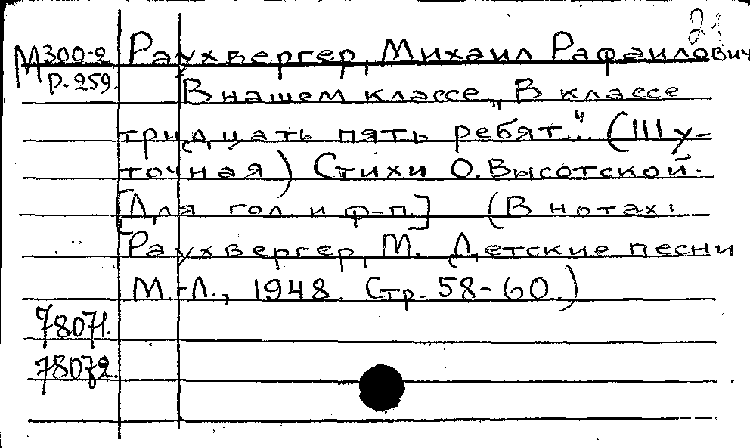 21
М300-2 Раухвергер, Михаил Рафаилович
Р-259. В нашем классе. „В классе
тридцать пять ребят..." (Шу-
точная) Стихи О. Высотской.
[Для гол. и ф-п.] (В нотах:
Раухвергер, М. Детские песни
М.-Л., 1948. Стр. 58-60.)
78071.
78072.